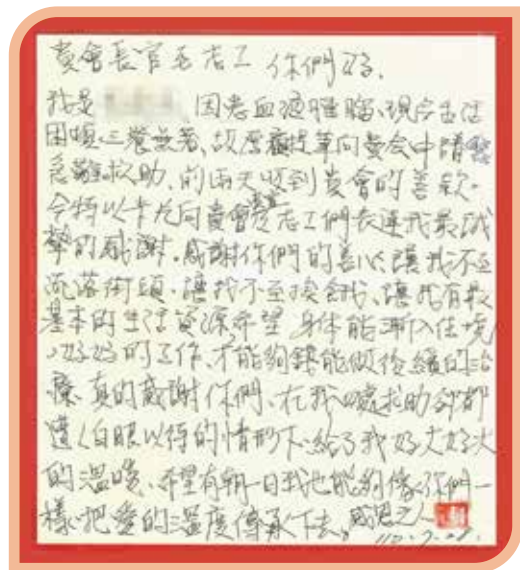 貴會長官和志工 你們好.
我是 因患血液腫瘤、現今生活
困頓、三餐無著、故厚顏提筆向貴会申請
急難救助、前兩天收到貴會的善款、
今特以卡片向貴會志工們表達我最誠
摯的感謝.感謝你們的善心,讓我不至
流落街頭、讓我不至挨餓、讓我有最
基本的生活資源希望 身体能漸入佳境
好好的工作、才能夠錢能做後續的治
療、真的感謝你們、在我處求助卻都
遭人白眼以待的情形下、給了我好大好大
的溫暖、希望有朝一日我也能夠像你們一
樣、把愛的溫度傳承下去。感恩之人